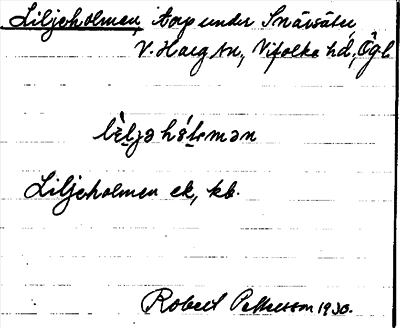 Liljeholmen, torp under Snävsäter,
V. Harg sn, Vifolka hd, Ögl
lèljəhólmən
Liljeholmen ek, kb.
Robert Pettersson 1930.